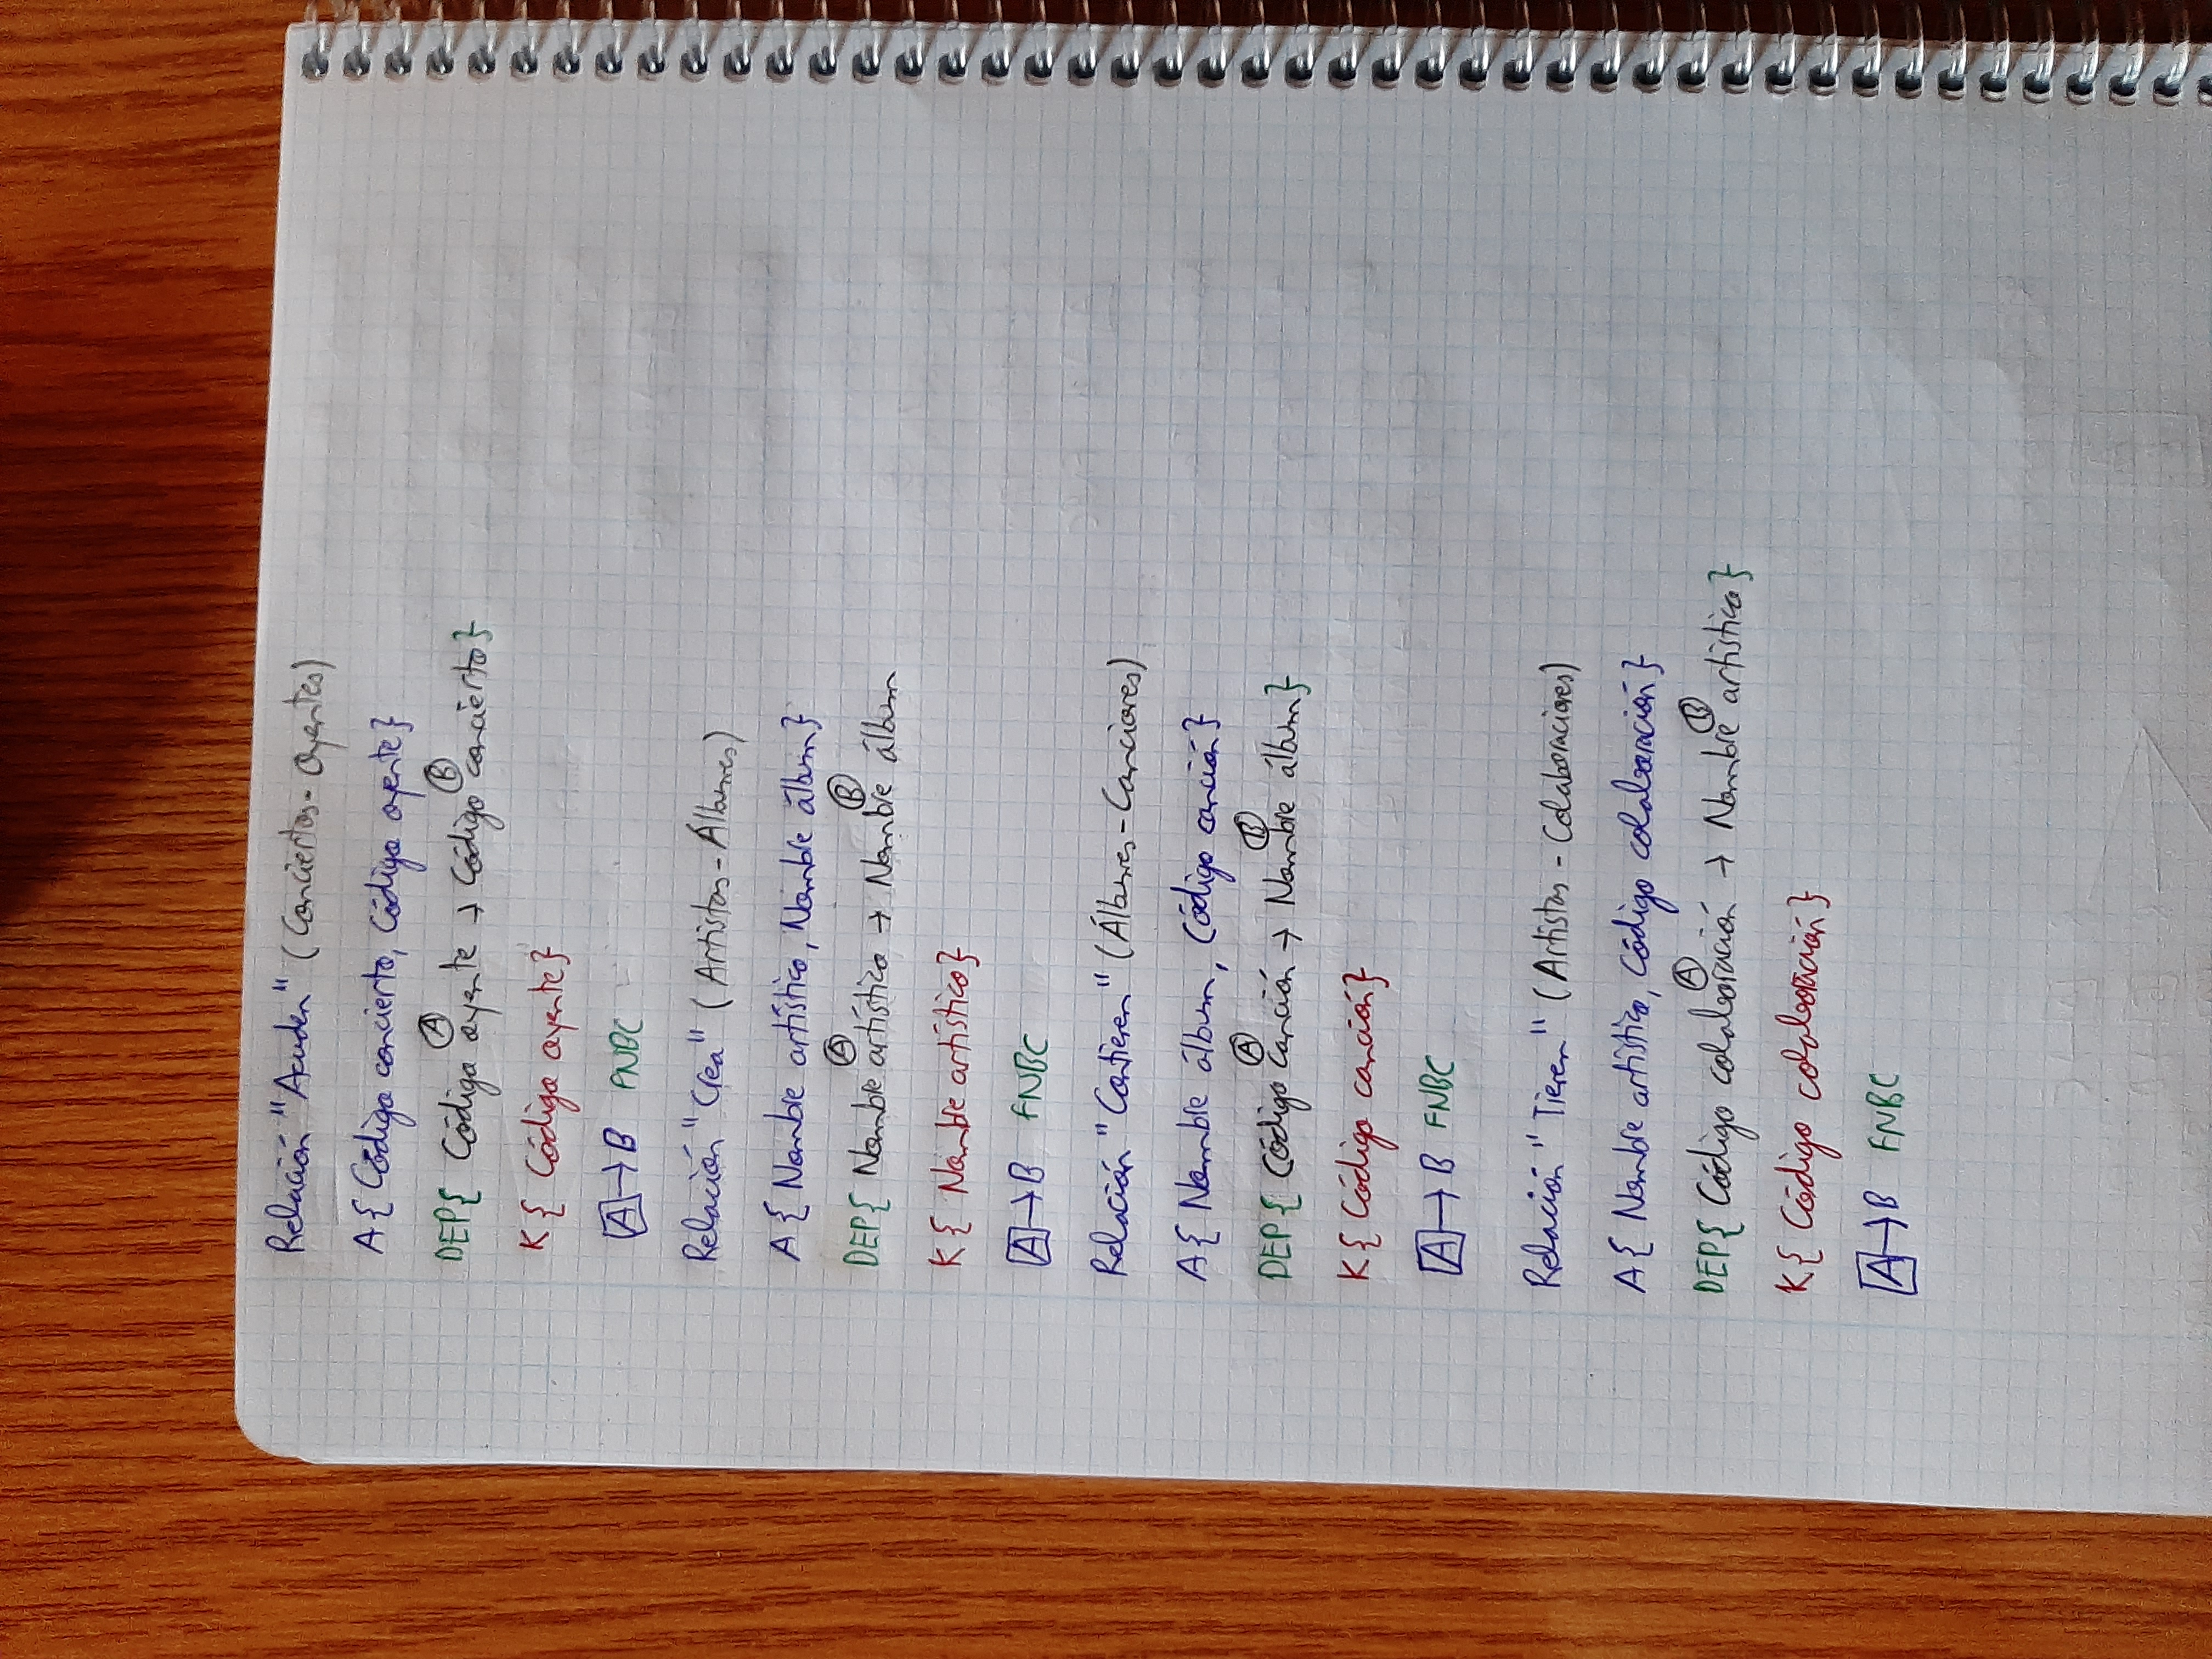 Relación "Acuden" (Conciertos - Oyentes)
A{ Código concierto, Código oyente}
A B
DEP{ Código oyente → Código concierto}
K{ Código oyente}
A → B FNBC
Relación "Crea" (Artistas - Álbumes)
A{ Nombre artístico, Nombre álbum}
A B
DEP{ Nombre artístico → Nombre álbum
K{ Nombre artístico}
A → B FNBC
Relación "Contienen" (Álbumes - Canciones)
A{ Nombre álbum, Código canción}
A B
DEP{ Código canción → Nombre álbum}
K{ Código canción}
A → B FNBC
Relación "Tienen" (Artistas - Colaboraciones)
A{ Nombre artístico, Código colaboración}
A B
DEP{ Código colaboración → Nombre artístico}
K{ Código colaboración}
A → B FNBC